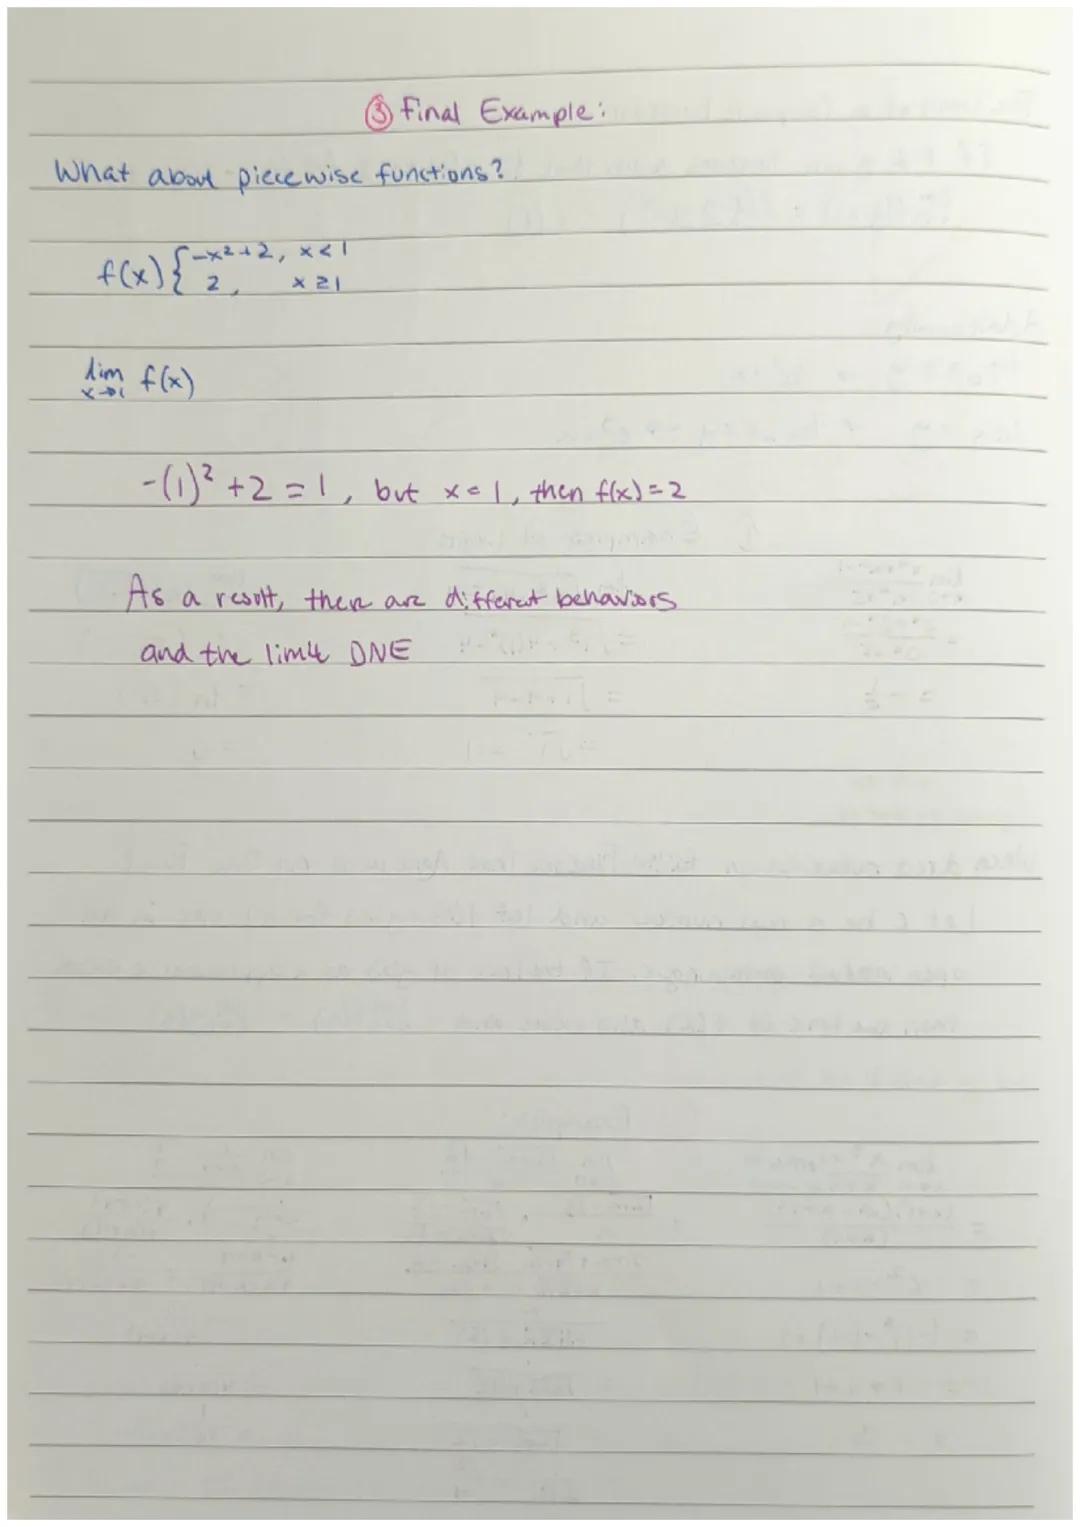 ③ Final Example:
What about piecewise functions?
f(x) { -x²+2, x<1
2, x≥1
lim f(x)
x→1
-(1)² +2 = 1, but x=1, then f(x)=2
As a result, there are different behaviors
and the limit DNE